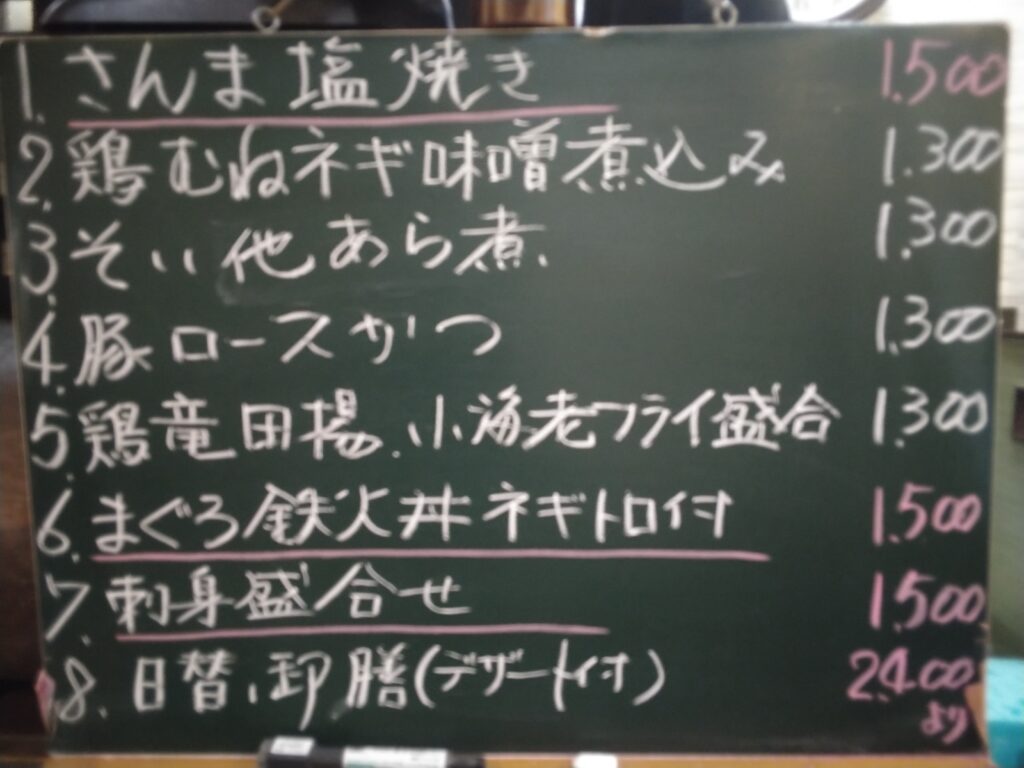 1. さんま塩焼き 1.500
2. 鶏むねネギ味噌煮込み 1.300
3. そい他あら煮 1.300
4. 豚ロースかつ 1.300
5. 鶏竜田揚、小海老フライ盛合 1.300
6. まぐろ鉄火丼ネギトロ付 1.500
7. 刺身盛合せ 1.500
8. 日替、御膳(デザート付) 2.400
より